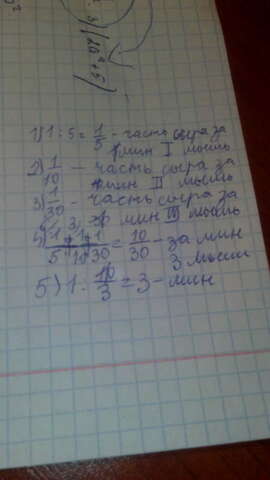 3)(20²+5)
1) 1 : 5 = 1/5 - часть сыра за
1 мин I мышь
2) 1/10 - часть сыра за
мин II мышь
3) 1/30 - часть сыра за
мин III мышь
4) 1/5 + 1/10 + 1/30 = 10/30 - за мин
3 мыши
5) 1 : 10/3 = 3 - мин